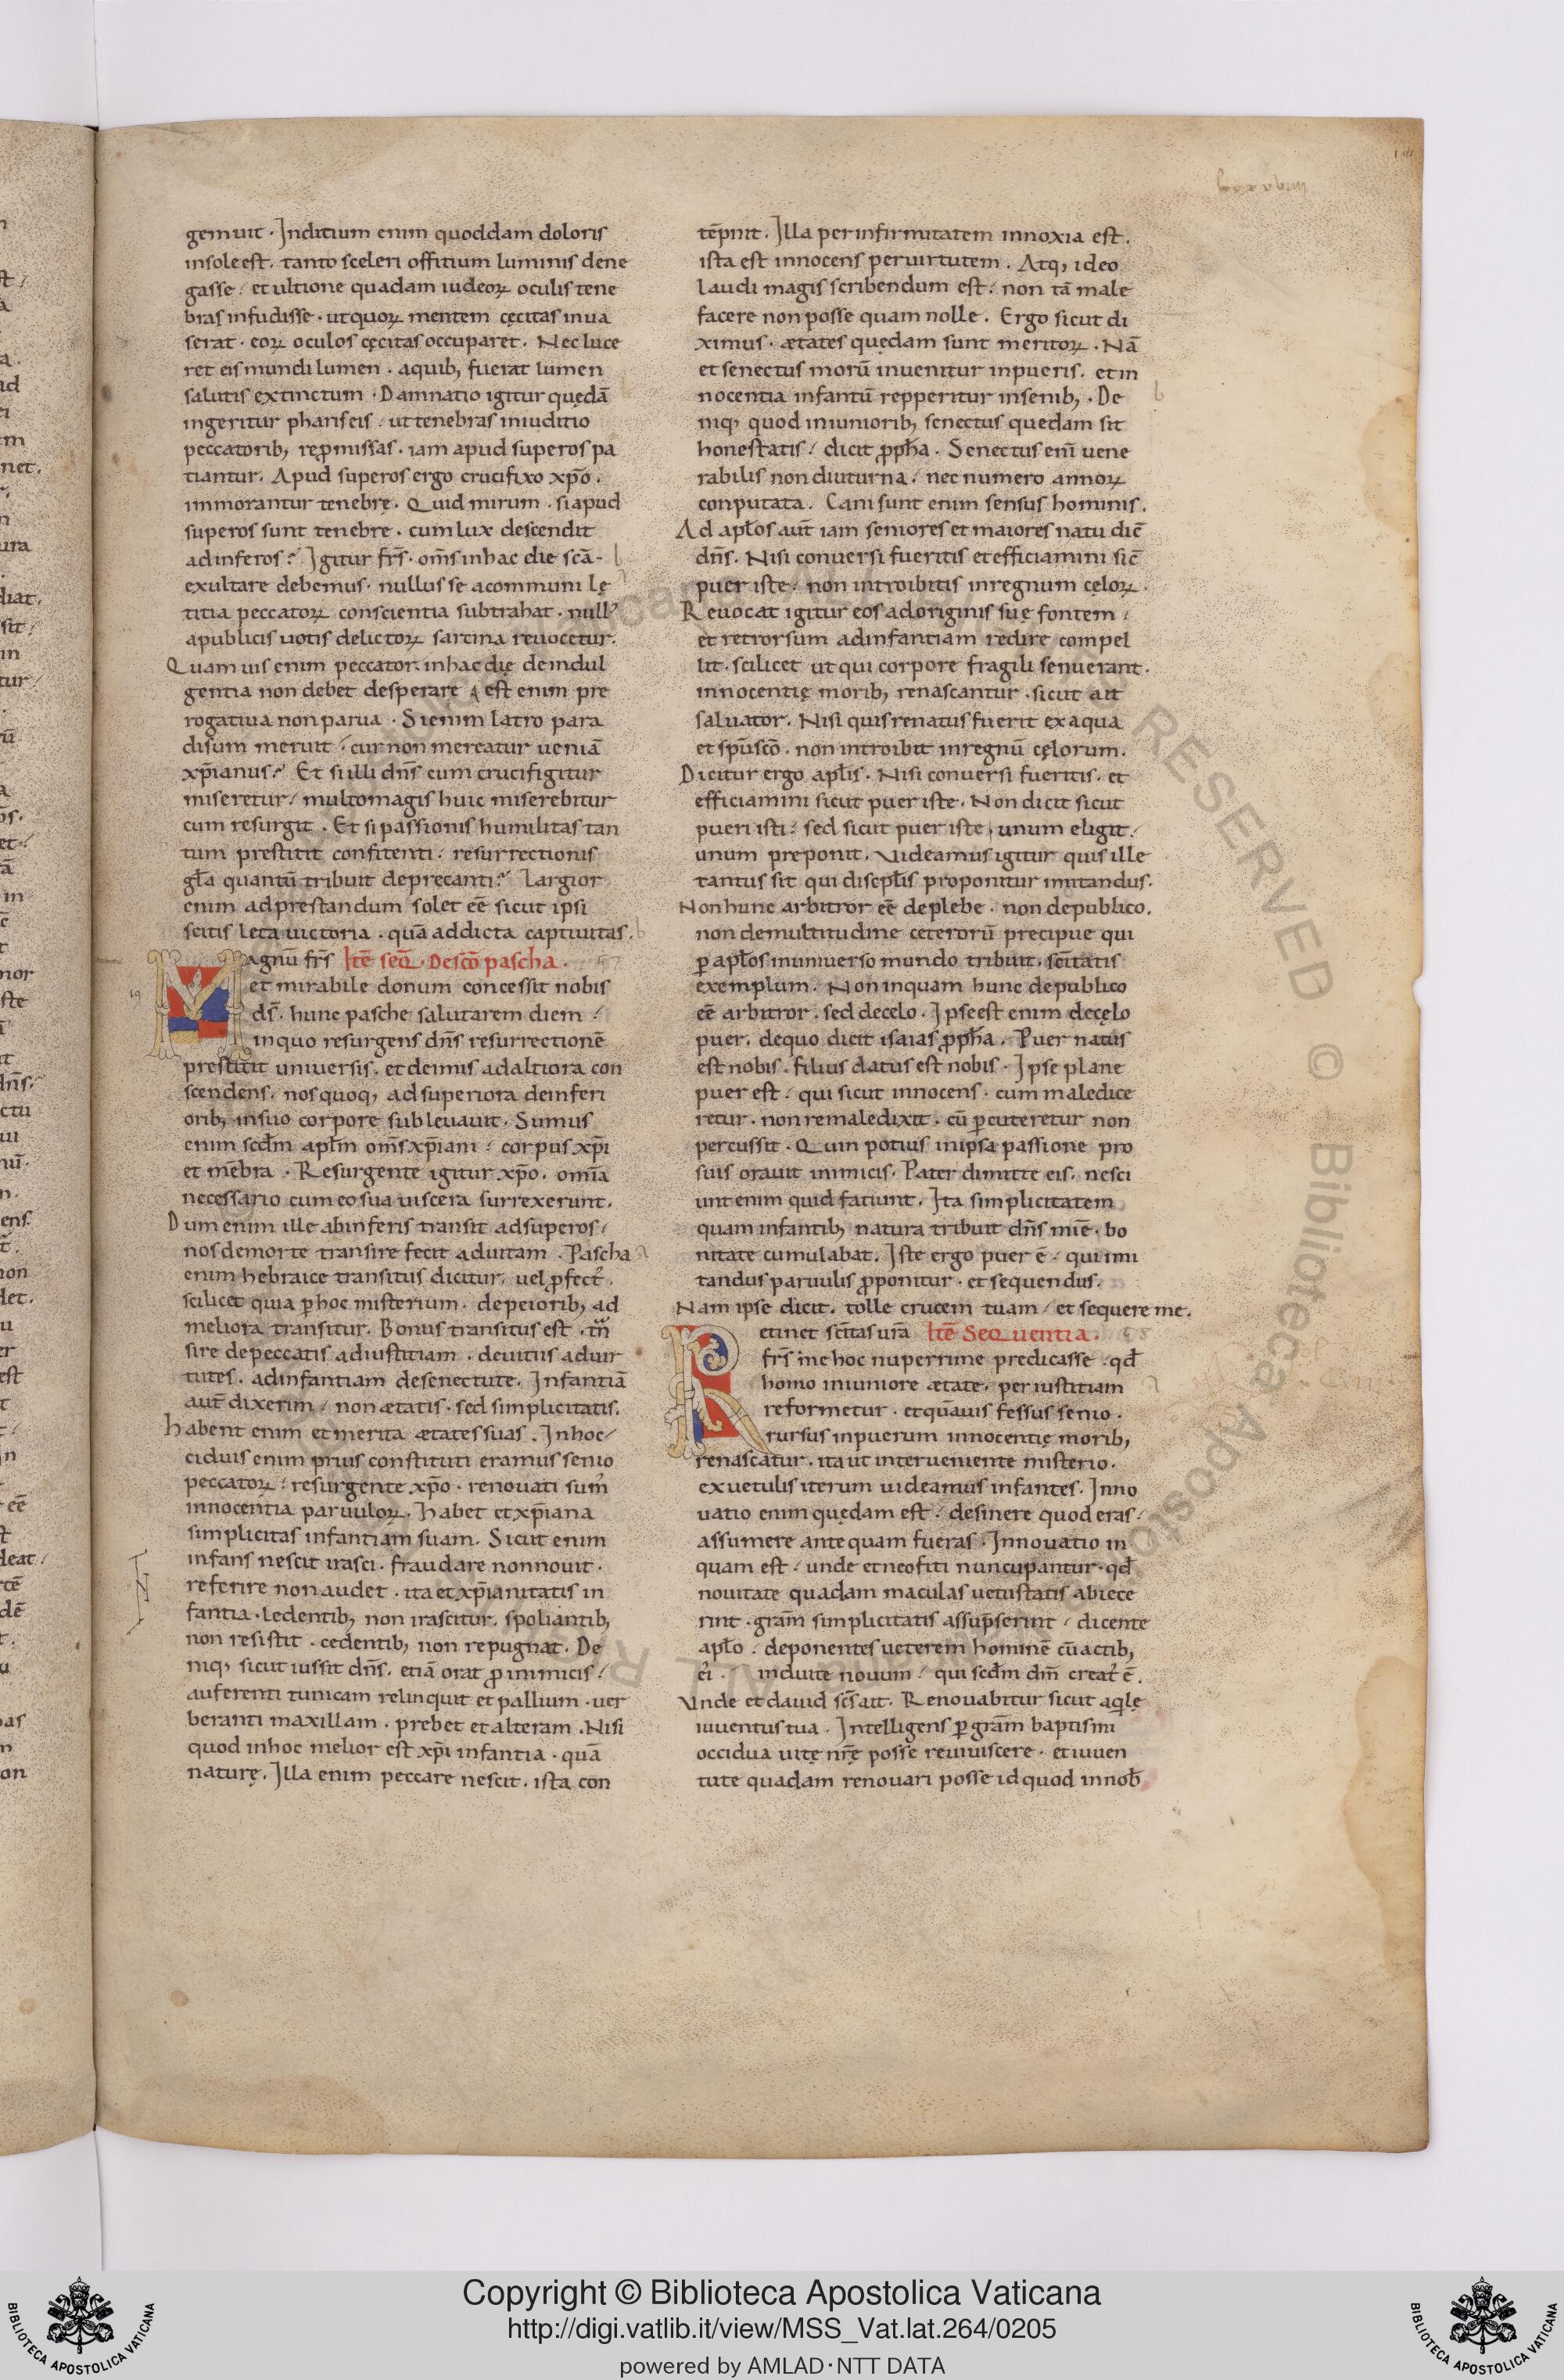 gemuit · Inditium enim quoddam doloris
in sole est · tanto sceleri offitium luminis dene
gasse / et ultione quadam iudeoꝝ oculis tene
bras infudisse · ut quoꝝ mentem cęcitas inua
serat · eoꝝ oculos cęcitas occuparet · Nec luce
ret eis mundi lumen · a quib; fuerat lumen
salutis extinctum · Damnatio igitur quędā
ingeritur phariseis / ut tenebras in iuditio
peccatorib; repmissas · iam apud superos pa
tiantur · Apud superos ergo crucifixo xp̄o ·
immorantur tenebrę · Quid mirum · si apud
superos sunt tenebre · cum lux descendit
ad inferos? Igitur fr̄s · om̄s in hac die sc̄a
exultare debemus · nullus se a communi lę
titia peccatoꝝ conscientia subtrahat · null᾽
a publicis uotis delictoꝝ sarcina reuocetur ·
Quam uis enim peccator · in hac die de indul
gentia non debet desperare / est enim pre
rogatiua non parua · Si enim latro para
disum meruit / cur non mereatur ueniā
xp̄ianus? Et si illi dn̄s cum crucifigitur
miseretur / multo magis huic miserebitur
cum resurgit · Et si passionis humilitas tan
tum prestitit confitenti · resurrectionis
gl̄a quantū tribuit deprecanti? Largior
enim ad prestandum solet ēē sicut ipsi
scitis leta uictoria · quā addicta captiuitas ·
Magnū fr̄s Itē seq̄ · De sc̄o pascha ·
et mirabile donum concessit nobis
ds̄ · hunc pasche salutarem diem /
in quo resurgens dn̄s resurrectionē
prestitit uniuersis · et de imis ad altiora con
scendens · nos quoq; ad superiora de inferi
orib; in suo corpore subleuauit · Sumus
enim scd̄m apl̄m om̄s xp̄iani / corpus xp̄i
et mēbra · Resurgente igitur xp̄o · om̄ia
necessario cum eo sua uiscera surrexerunt ·
Dum enim ille ab inferis transit ad superos /
nos de morte transire fecit ad uitam · Pascha
enim hebraice transitus dicitur · uel ꝓfect᾽ ·
scilicet quia ꝑ hoc misterium · de peiorib; ad
meliora transitur · Bonus transitus est · trn̄
sire de peccatis ad iustitiam · de uitiis ad uir
tutes · ad infantiam de senectute · Infantiā
aut̄ dixerim / non ætatis · sed simplicitatis ·
Habent enim et merita ætates suas · In hoc /
ciduis enim prius constituti eramus senio
peccatoꝝ / resurgente xp̄o · renouati sum᾽
innocentia paruuloꝝ · Habet et xp̄iana
simplicitas infantiam suam · Sicut enim
infans nescit irasci · fraudare non nouit ·
referire non audet · ita et xp̄ianitatis in
fantia · ledentib; non irascitur · spoliantib;
non resistit · cedentib; non repugnat · De
niq; sicut iussit dn̄s · etiā orat ꝓ inimicis /
auferenti tunicam relinquit et pallium · uer
beranti maxillam · prebet et alteram · Nisi
quod in hoc melior est xp̄i infantia · quā
naturę · Illa enim peccare nescit · ista con
tēpnit · Illa per infirmitatem innoxia est ·
ista est innocens per uirtutem · Atq; ideo
laudi magis scribendum est / non tā male
facere non posse quam nolle · Ergo sicut di
ximus · ætates quędam sunt meritoꝝ · Nā
et senectus morū inuenitur in pueris · et in
nocentia infantū repperitur in senib; · De
niq; quod in iuniorib; senectus quedam sit
honestatis / dicit ꝓph̄a · Senectus eni᷑ uene
rabilis non diuturna / nec numero annoꝝ
conputata · Cani sunt enim sensus hominis ·
Ad apl̄os aut̄ iam seniores et maiores natu dic̄
dn̄s · Nisi conuersi fueritis et efficiamini sic̄
puer iste / non introibitis in regnum cęloꝝ ·
Reuocat igitur eos ad originis suę fontem /
et retrorsum ad infantiam redire compel
lit · scilicet ut qui corpore fragili senuerant ·
innocentię morib; renascantur · sicut ait
saluator · Nisi quis renatus fuerit ex aqua
et sp̄u sc̄o · non introibit in regnū cęlorum ·
Dicitur ergo apl̄is · Nisi conuersi fueritis · et
efficiamini sicut puer iste · Non dicit sicut
pueri isti / sed sicut puer iste · unum eligit /
unum preponit · Videamus igitur quis ille
tantus sit qui discipl̄is proponitur imitandus ·
Non hunc arbitror ēē de plebe · non de publico ·
non de multitudine ceterorū precipue qui
ꝑ apl̄os in uniuerso mundo tribuit · sc̄itatis
exemplum · Non inquam hunc de publico
ēē arbitror · sed de celo · Ipse est enim de cęlo
puer · de quo dicit isaias ꝓph̄a · Puer natus
est nobis · filius datus est nobis · Ipse plane
puer est / qui sicut innocens · cum maledice
retur · non remaledixit · cū ꝑcuteretur non
percussit · Quin potius in ipsa passione pro
suis orauit inimicis · Pater dimitte eis · nesci
unt enim quid fatiunt · Ita simplicitatem
quam infantib; natura tribuit dn̄s mie᷑ · bo
nitate cumulabat · Iste ergo puer ē / qui imi
tandus paruulis ꝓponitur · et sequendus ·
Nam ipse dicit · tolle crucem tuam / et sequere me ·
Retinet sc̄itas ura᷑ Itē Sequentia ·
fr̄s me hoc nuperrime predicasse · qd̄
homo in iuniore ætate · per iustitiam
reformetur · et quāuis fessus senio ·
rursus in puerum innocentię morib;
renascatur · ita ut interueniente misterio ·
ex uetulis iterum uideamus infantes · Inno
uatio enim quędam est / desinere quod eras /
assumere ante quam fueras · Innouatio in
quam est / unde et neofiti nuncupantur · qd̄
nouitate quadam maculas uetustatis abiece
rint · gram̄ simplicitatis assūpserint / dicente
apl̄o / deponentes ueterem hominē cū actib;
ei᾽ · induite nouum / qui scd̄m dm̄ creat᾽ ē ·
Vnde et dauid sc̄s ait · Renouabitur sicut aq̄lę
iuuentus tua · Intelligens ꝑ gram̄ baptismi
occidua uitę nr̄ę posse reuiuiscere · et iuuen
tute quadam renouari posse id quod in nob̄
Copyright © Biblioteca Apostolica Vaticana
http://digi.vatlib.it/view/MSS_Vat.lat.264/0205
powered by AMLAD·NTT DATA